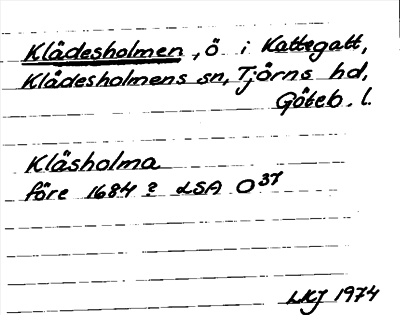 Klädesholmen, ö i Kattegatt,
Klädesholmens sn, Tjörns hd,
Göteb. l.
Kläsholma
före 1684? LSA O 37
LKJ 1974